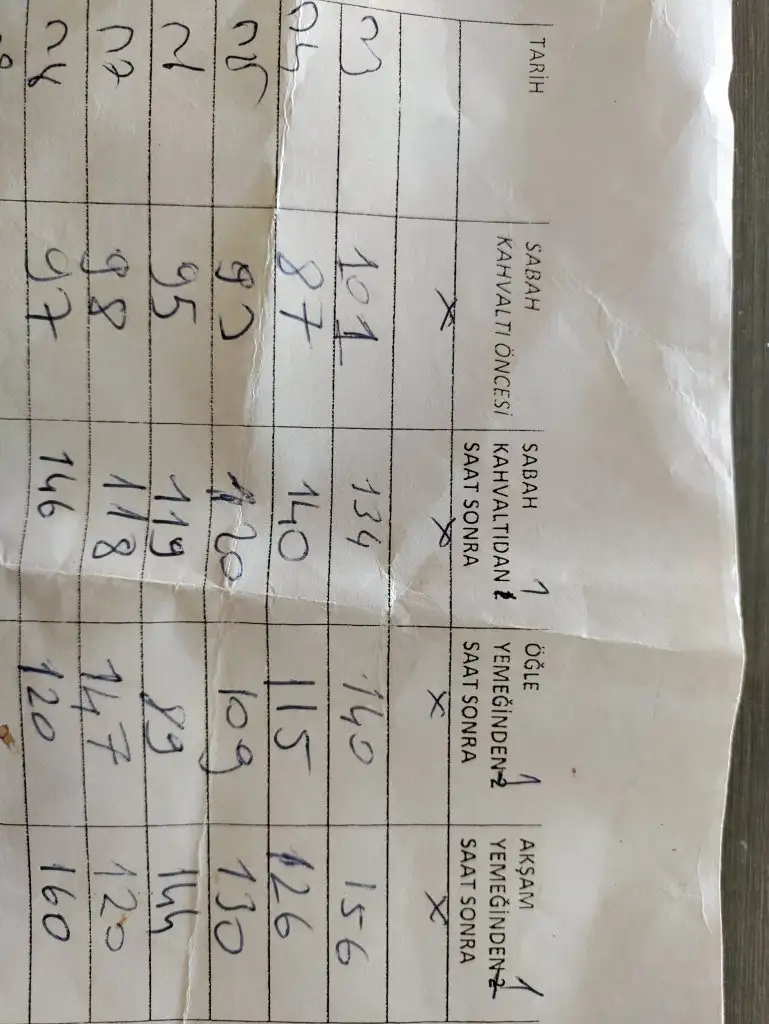 TARİH
SABAH
KAHVALTI ÖNCESİ
SABAH
KAHVALTIDAN 1
SAAT SONRA
ÖĞLE
YEMEĞİNDEN 1
SAAT SONRA
AKŞAM
YEMEĞİNDEN 1
SAAT SONRA
X X X X
101 134 140 156
87 140 115 126
120 109 130
95 119 89 144
98 118 147 120
97 146 120 160